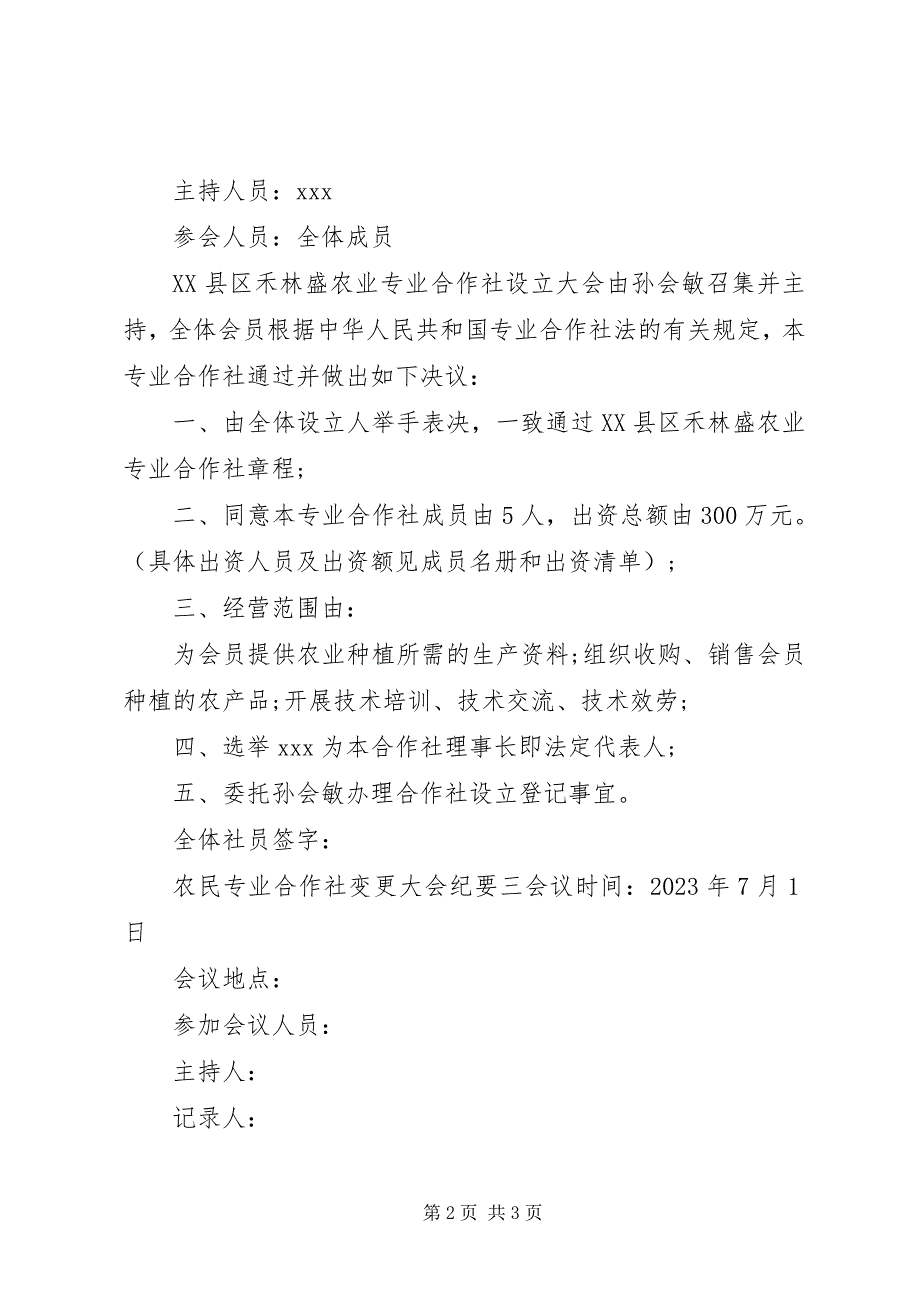 主持人员：xxx
参会人员：全体成员
XX 县区禾林盛农业专业合作社设立大会由孙会敏召集并主
持，全体会员根据中华人民共和国专业合作社法的有关规定，本
专业合作社通过并做出如下决议：
一、由全体设立人举手表决，一致通过 XX 县区禾林盛农业
专业合作社章程;
二、同意本专业合作社成员由 5 人，出资总额由 300 万元。
（具体出资人员及出资额见成员名册和出资清单）;
三、经营范围由：
为会员提供农业种植所需的生产资料;组织收购、销售会员
种植的农产品;开展技术培训、技术交流、技术效劳;
四、选举 xxx 为本合作社理事长即法定代表人;
五、委托孙会敏办理合作社设立登记事宜。
全体社员签字：
农民专业合作社变更大会纪要三会议时间：2023 年 7 月 1
日
会议地点：
参加会议人员：
主持人：
记录人：
第 2 页 共 3 页